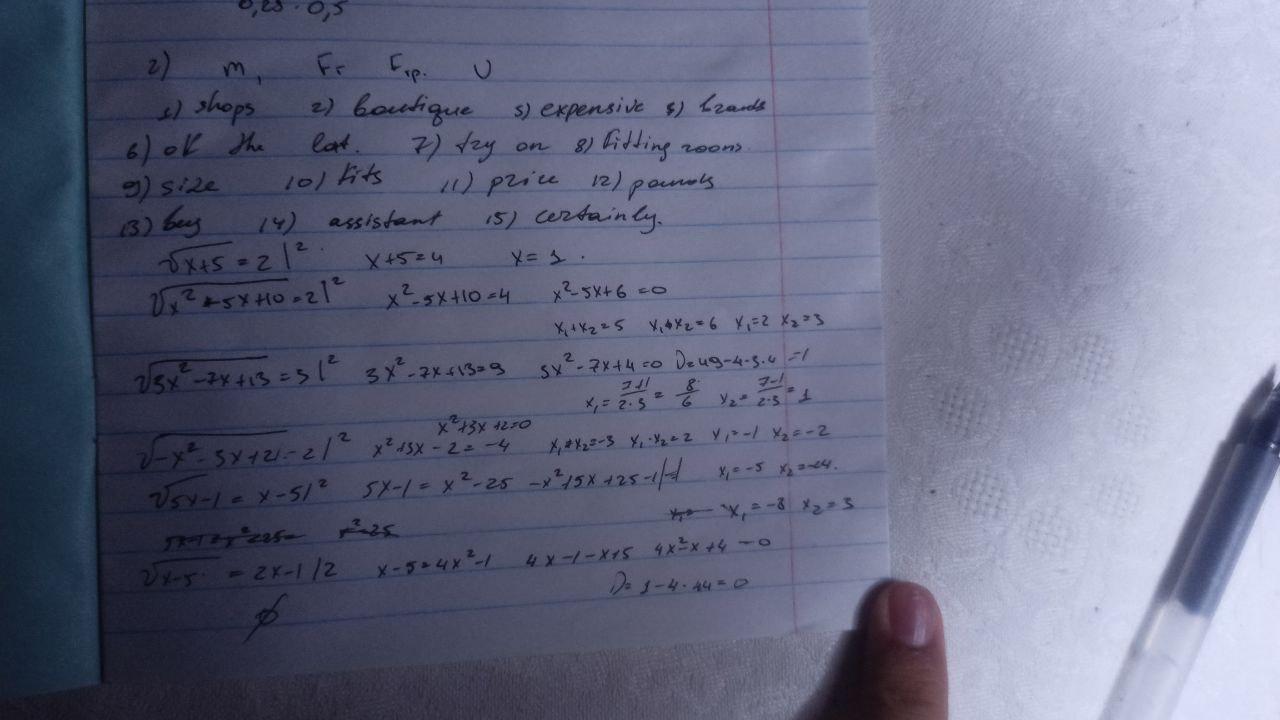 0,25 · 0,5
2) m, Fт Fтр. U
1) shops 2) boutique 5) expensive 5) brands
6) of the lat. 7) try on 8) fitting rooms
9) size 10) fits 11) price 12) pounds
13) buy 14) assistant 15) certainly.
√x+5 = 2 |² x+5=4 x= 1.
√x²-5x+10 = 2|² x²-5x+10=4 x²-5x+6=0
x₁+x₂=5 x₁·x₂=6 x₁=2 x₂=3
√3x²-7x+13 = 3|² 3x²-7x+13=9 3x²-7x+4=0 D=49-4·3·4=1
x₁= 7+1/2·3 = 8/6 x₂= 7-1/2·3 = 1
x²+3x+2=0
√-x²-3x+2 - 2|² x²+3x-2=-4 x₁+x₂=-3 x₁·x₂=2 x₁=-1 x₂=-2
√5x-1 = x-5|² 5x-1=x²-25 -x²+5x+25-1 x₁=-5 x₂=-24.
x₁=-8 x₂=3
√x-5 = 2x-1/2 x-5=4x²-1 4x-1-x+5 4x²-x+4=0
D= 1-4·44=0
∅